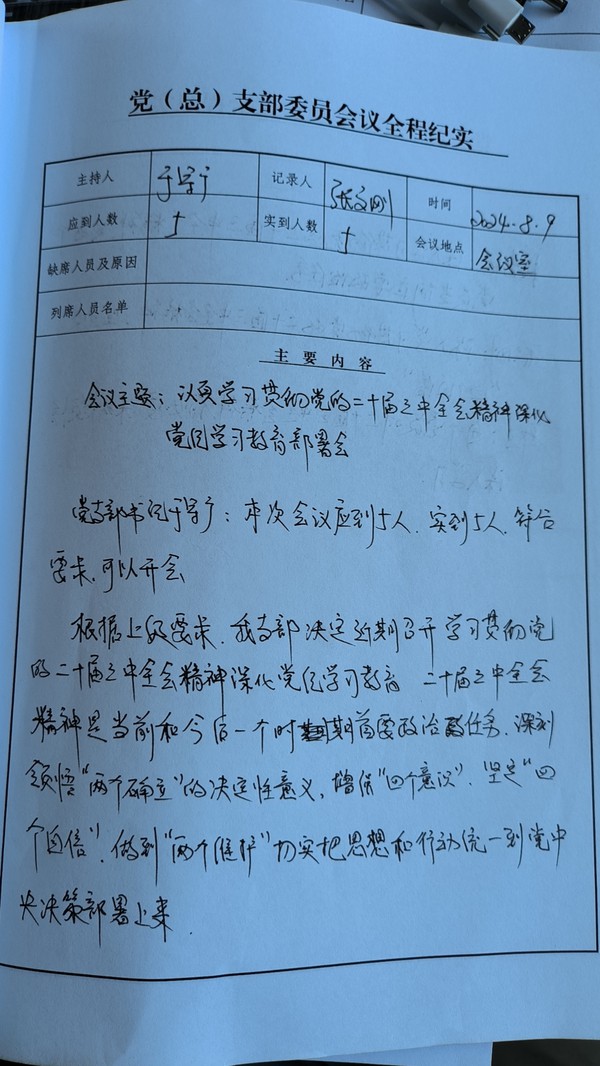 党（总）支部委员会议全程纪实
主持人 于学广 记录人 张文刚 时间 2024.8.9
应到人数 5 实到人数 5 会议地点 会议室
缺席人员及原因
列席人员名单
主要内容
会议主题：认真学习贯彻党的二十届三中全会精神深化
党纪学习教育部署会
党支部书记于学广：本次会议应到5人，实到5人，符合
要求，可以开会
根据上级要求，我支部决定近期召开学习贯彻党
的二十届三中全会精神深化党纪学习教育 二十届三中全会
精神是当前和今后一个时期首要政治任务，深刻
领悟“两个确立”的决定性意义，增强“四个意识”，坚定“四
个自信”，做到“两个维护”切实把思想和行动统一到党中
央决策部署上来.